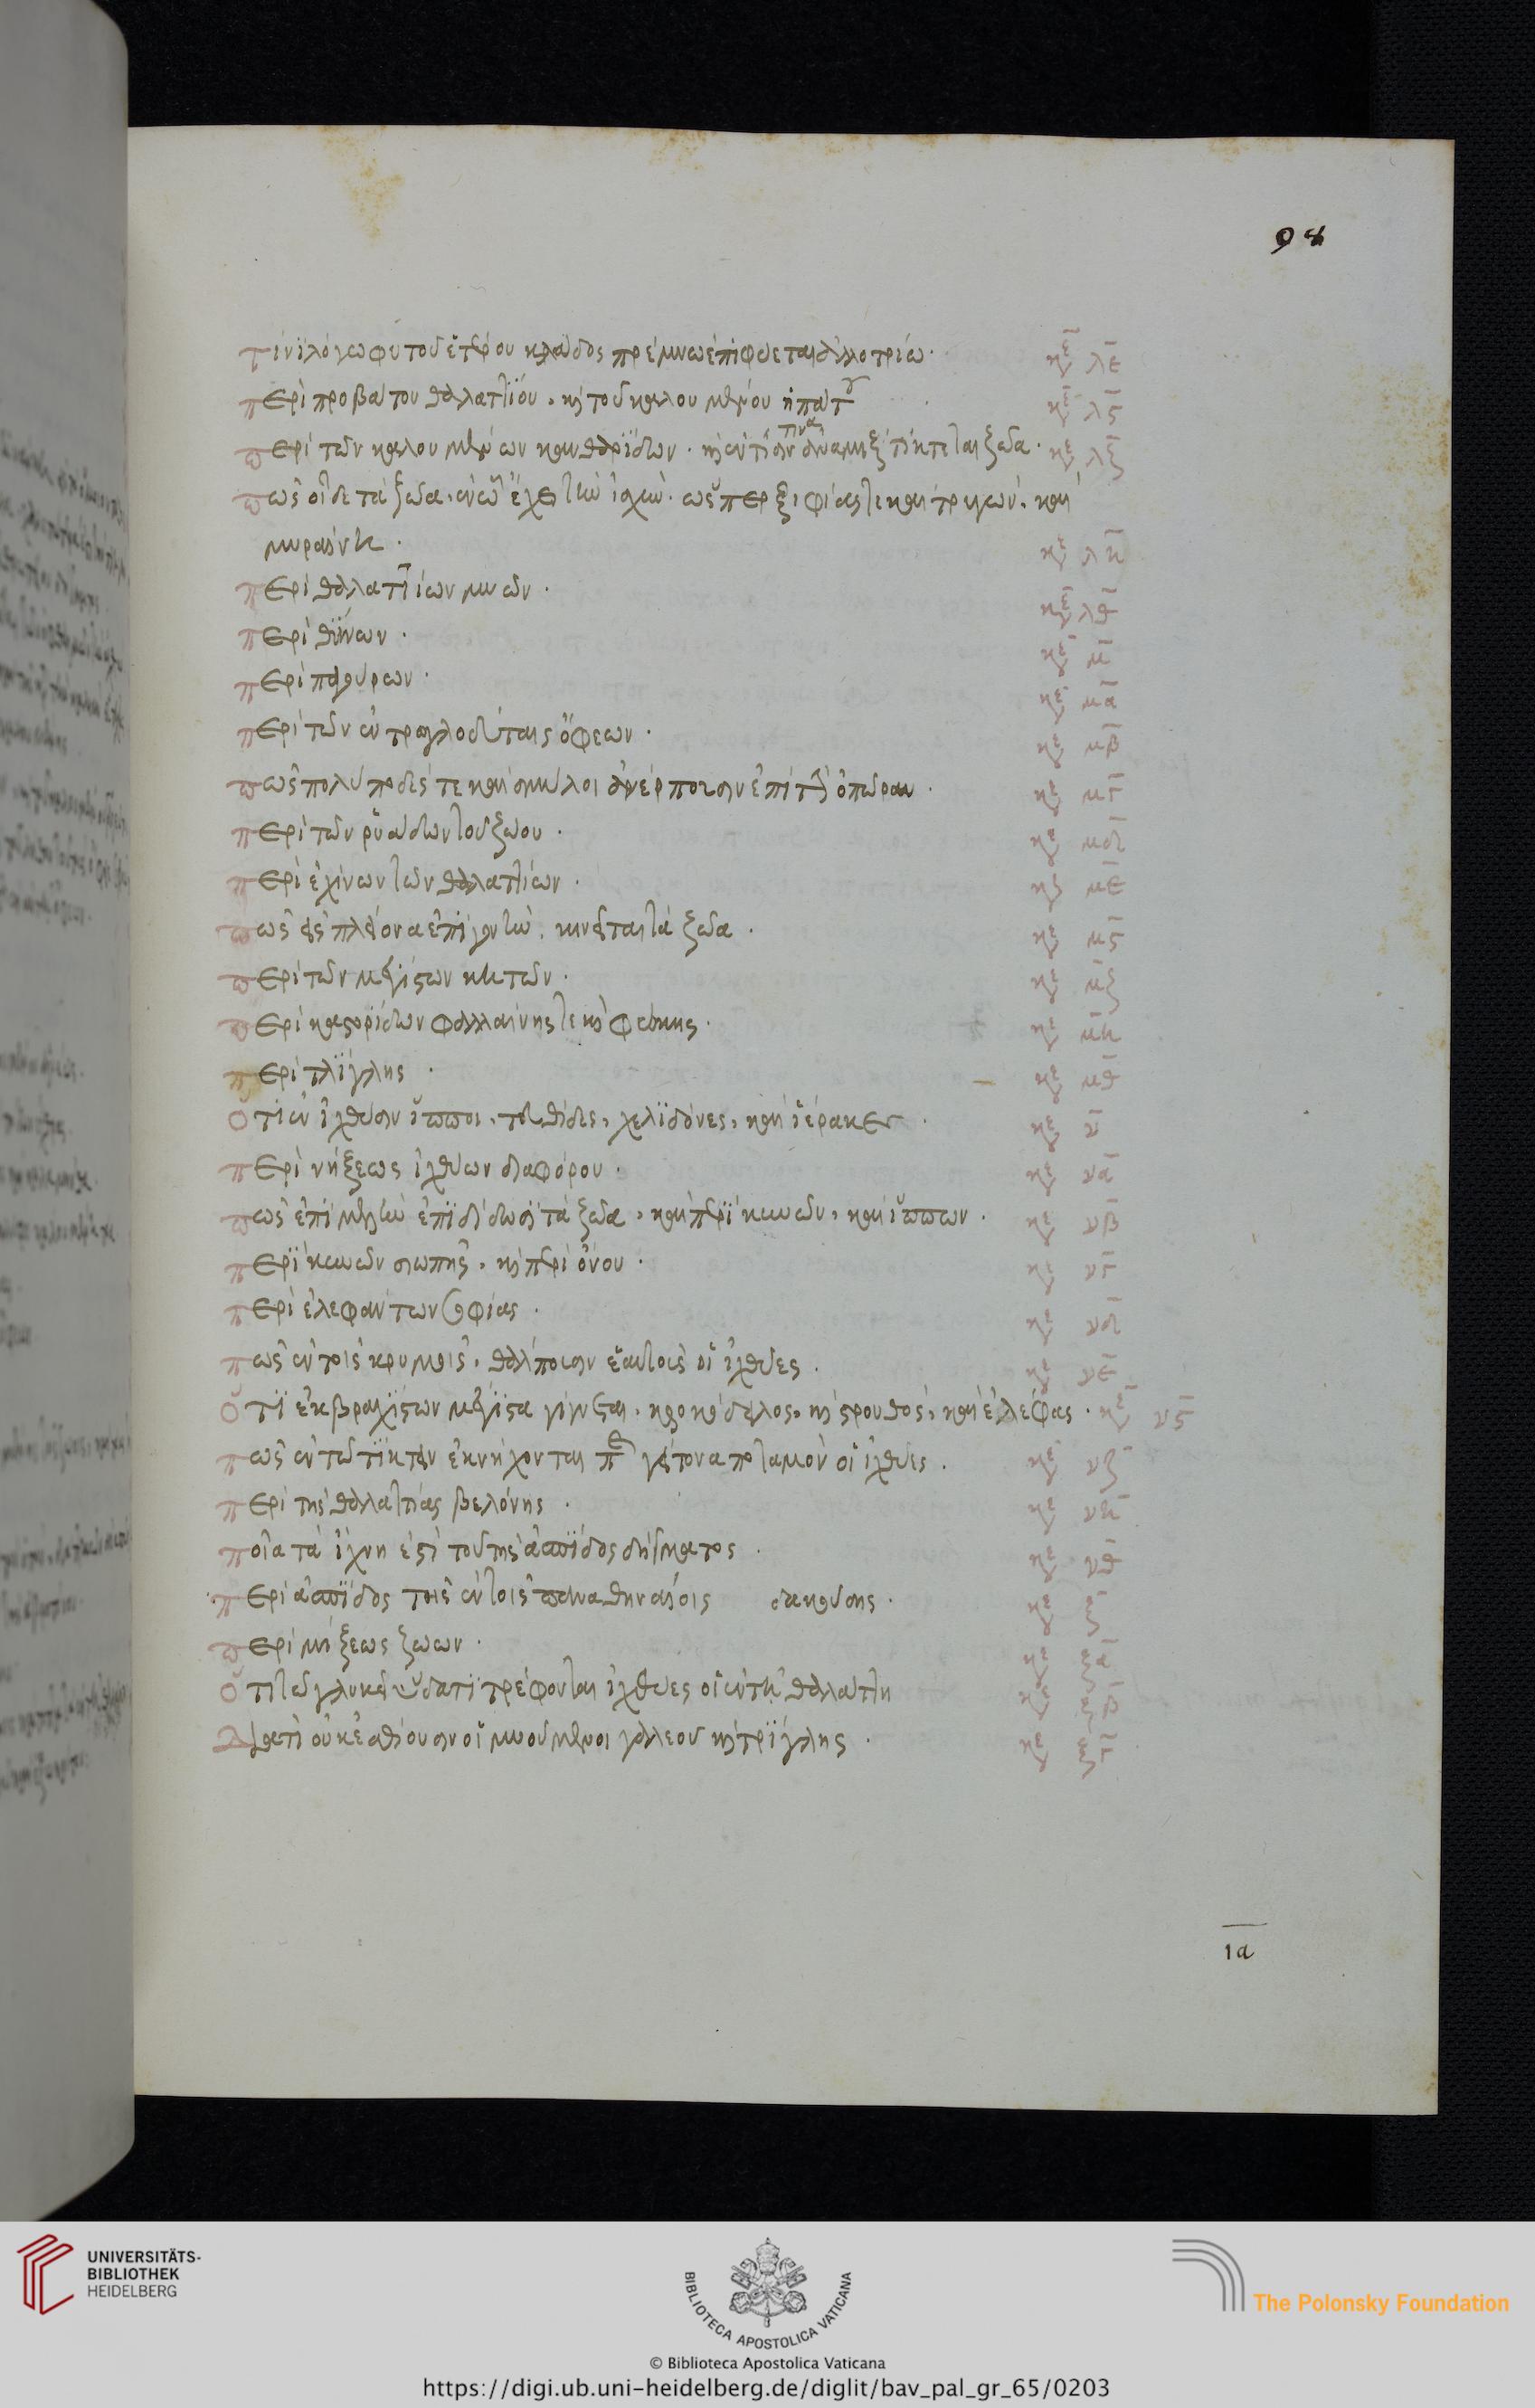 98
Τίνι λόγω φυτοῦ ἑτέρου κλάδος πρέμνω ἐπιφύεται ἀλλοτρίω· κεφ λε
περὶ προβάτου θαλαττίου· καὶ τοῦ καλουμένου ἥπατος κεφ λς
περὶ τῶν καλουμένων κανθαρίδων· κεφ λζ
πῶς οἶδε τὰ ζῶα· ἐν ὧ ἔχει τὴν ἰσχύν· ὥσπερ ξιφίας τε καὶ τρυγών· καὶ
μύραινα· κεφ λη
περὶ θαλαττίων μυῶν· κεφ λθ
περὶ θύννων· κεφ μ
περὶ πορφύρεων· κεφ μα
περὶ τῶν ἐν τρωγλοδύταις ὄφεων· κεφ μβ
πῶς πολύποδές τε καὶ ἀνέρπουσιν ἐπὶ τὴν ὀπώραν· κεφ μγ
περὶ τῶν ρυάδων τοῦ ζώου· κεφ μδ
περὶ ἐχίνων τῶν θαλαττίων· κεφ με
πῶς εἰς πλείονα ἐπιγονὴν κινεῖται τὰ ζῶα· κεφ μς
περὶ τῶν μεγίστων κητῶν· κεφ μζ
περὶ καστορίδων φαλλαίνης τε καὶ φώκης· κεφ μη
περὶ τρίγλης· κεφ μθ
ὅτι ἐν ἰχθύσιν ἵπποι· τευθίδες, χελιδόνες, καὶ ἱέρακες· κεφ ν
περὶ νήξεως ἰχθύων διαφόρου· κεφ να
πῶς ἐπὶ ἐπιδίδωσι τὰ ζῶα· καὶ περὶ κυνῶν· καὶ ἵππων· κεφ νβ
περὶ κυνῶν σιωπῆς· καὶ περὶ ὄνου· κεφ νγ
περὶ ἐλεφάντων σοφίας· κεφ νδ
πῶς ἐν τοῖς κρυμοῖς· θάλπουσιν ἑαυτοὺς οἱ ἰχθύες· κεφ νε
ὅτι ἐκ βραχίστων μέγιστα γίνεται· κροκόδειλος· καὶ στρουθός· καὶ ἐλέφας· κεφ νς
πῶς ἐν τῶ τίκτειν ἐκνήχονται πρὸς γείτονα ποταμὸν οἱ ἰχθύες· κεφ νζ
περὶ τῆς θαλαττίας βελόνης· κεφ νη
ποῖα τὰ ἴχνη ἐστὶ τοῦ τῆς ἀσπίδος δήγματος· κεφ νθ
περὶ ἀσπίδος τῆς ἐν τοῖς παναθηναίοις δακούσης· κεφ ξ
περὶ μίξεως ζώων· κεφ ξα
ὅτι τῶ γλυκεῖ ὕδατι τρέφονται ἰχθύες οἱ ἐν τῆ θαλάττη κεφ ξβ
Διατί οὐκ ἐσθίουσιν οἱ μυούμενοι γαλεοῦ καὶ τρίγλης· κεφ ξγ
ια
UNIVERSITÄTS-
BIBLIOTHEK
HEIDELBERG
BIBLIOTECA APOSTOLICA VATICANA
The Polonsky Foundation
© Biblioteca Apostolica Vaticana
https://digi.ub.uni-heidelberg.de/diglit/bav_pal_gr_65/0203